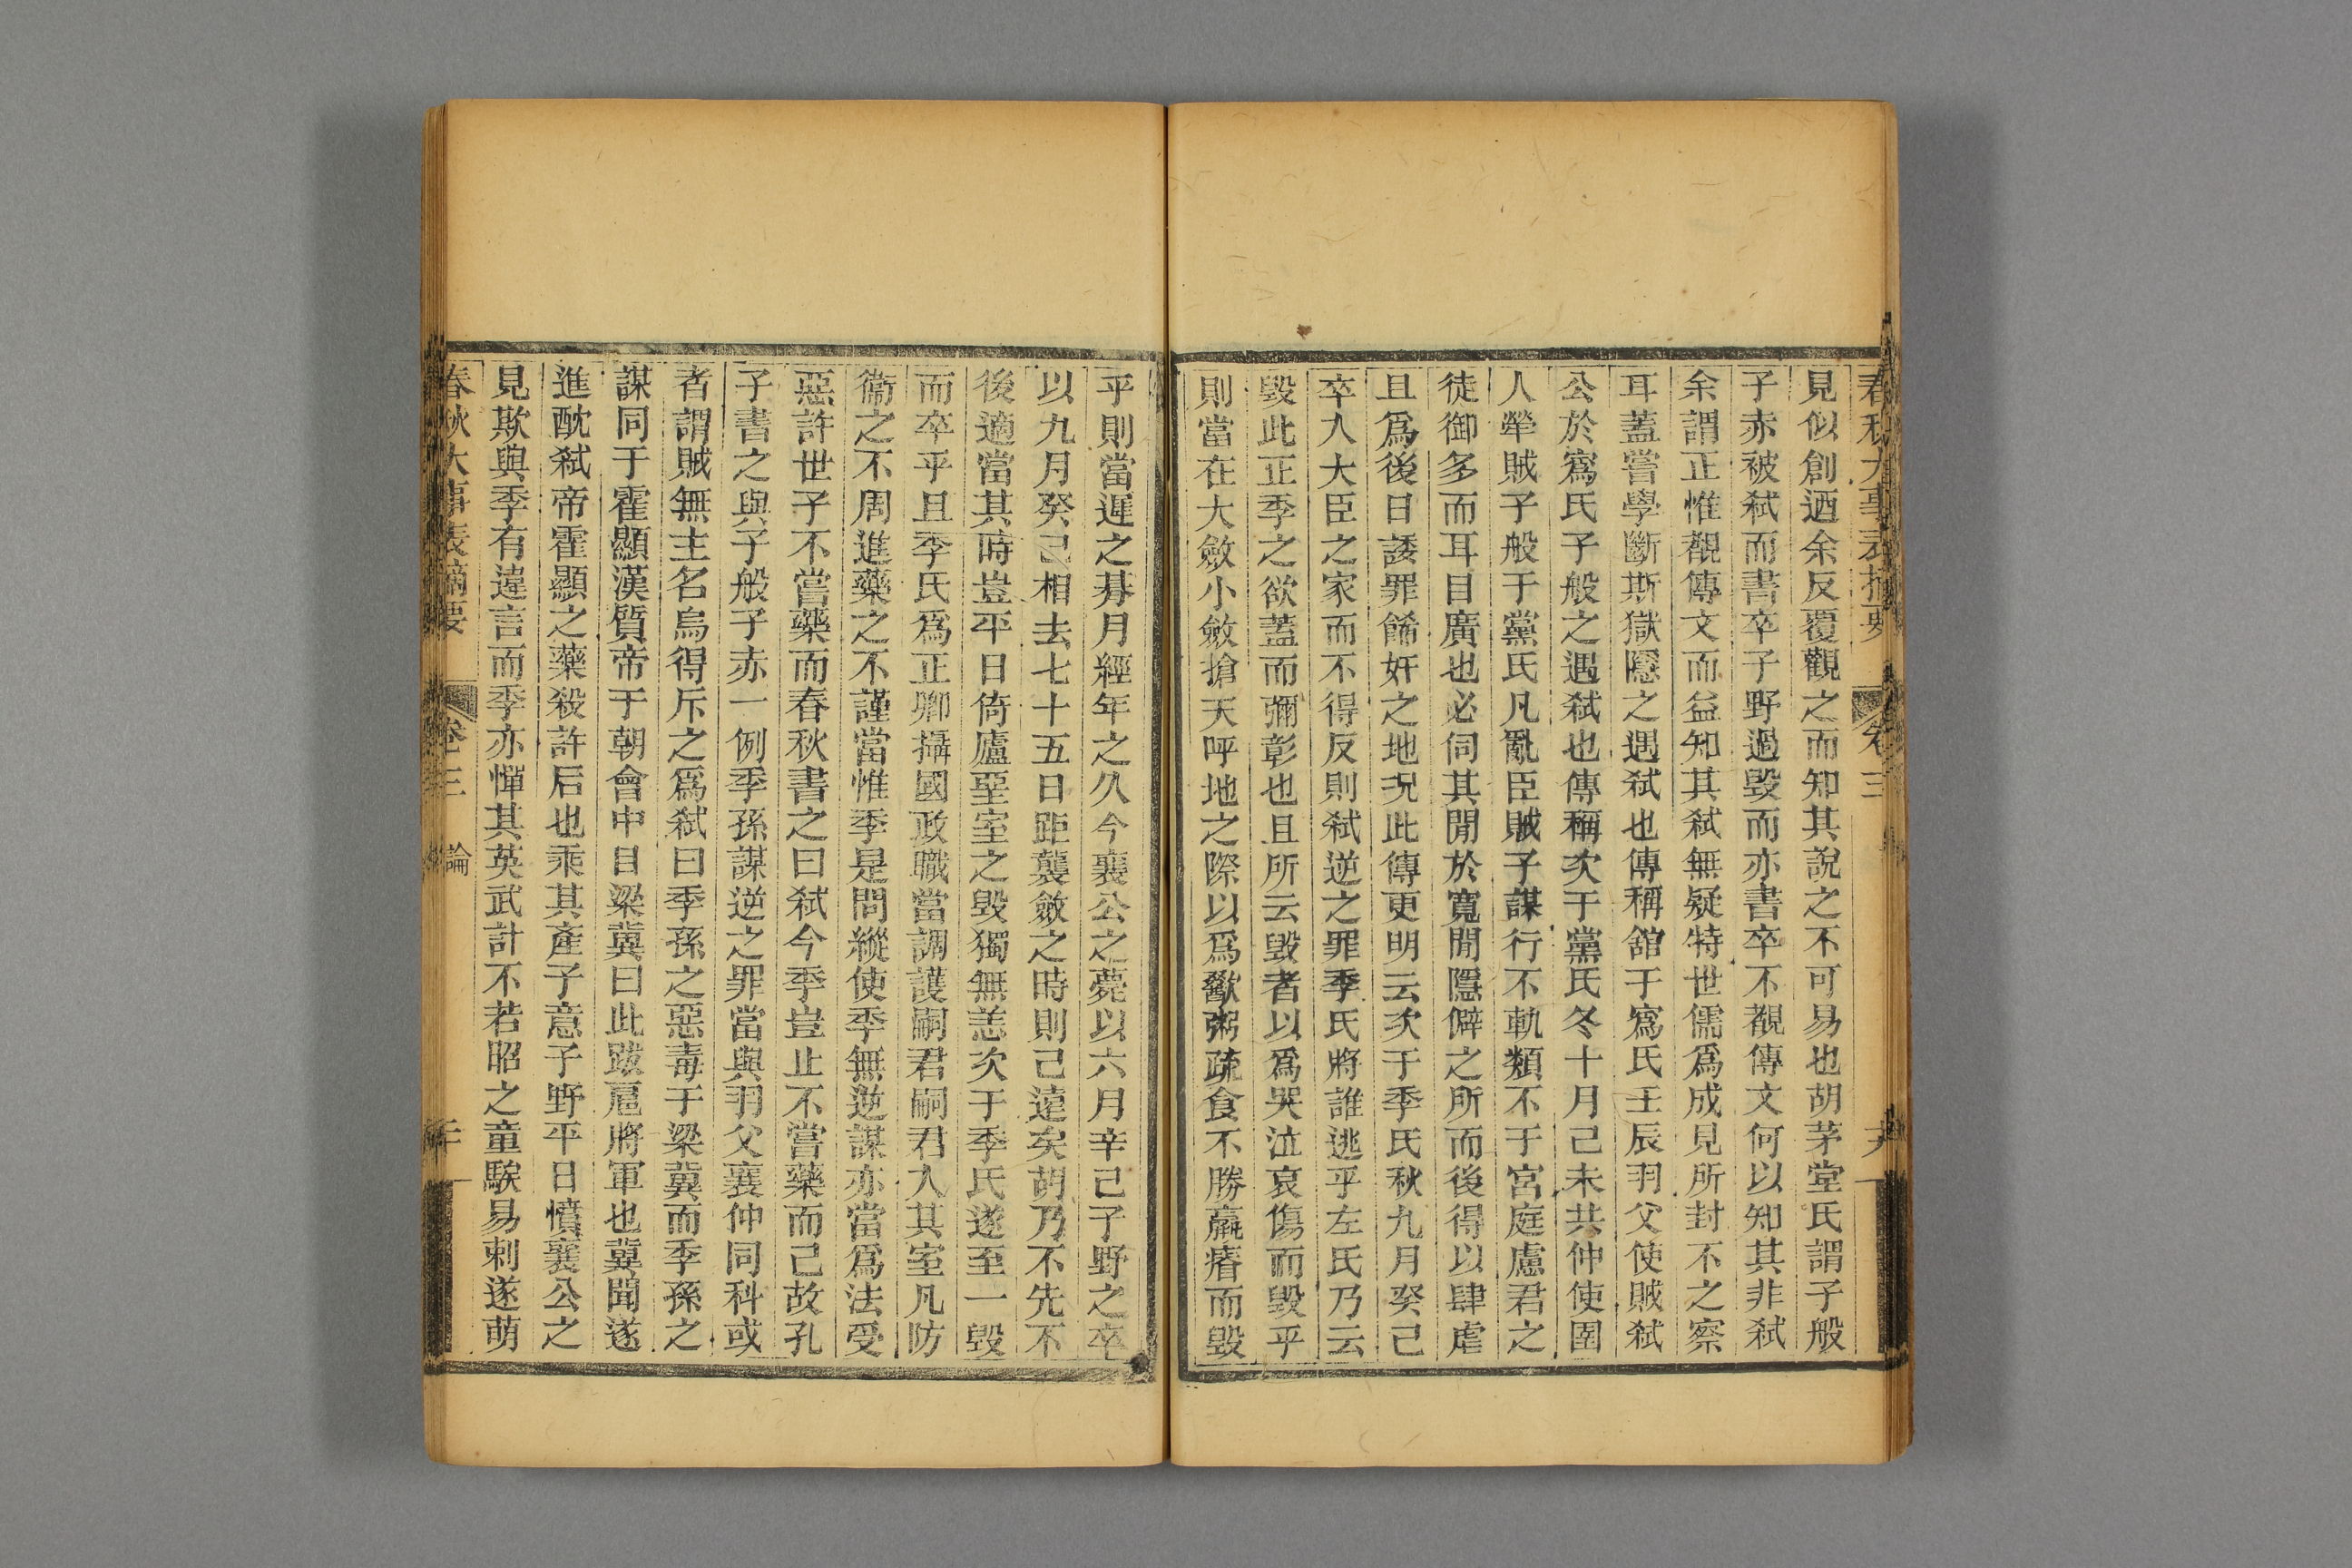 春秋大事表摘要 卷三
見似創迺余反覆觀之而知其說之不可易也胡茅堂氏謂子般
子赤被弑而書卒子野過毀而亦書卒不觀傳文何以知其非弑
余謂正惟觀傳文而益知其弑無疑特世儒爲成見所封不之察
耳蓋嘗學斷斯獄隱之遇弑也傳稱舘于寪氏壬辰羽父使賊弑
公於寪氏子般之遇弑也傳稱次于黨氏冬十月己未共仲使圉
人犖賊子般于黨氏凡亂臣賊子謀行不軌類不于宮庭慮君之
徒御多而耳目廣也必伺其閒於寬閒隱僻之所而後得以肆虐
且爲後日諉罪餙奸之地况此傳更明云次于季氏秋九月癸己
卒入大臣之家而不得反則弑逆之罪季氏將誰逃乎左氏乃云
毀此正季之欲蓋而彌彰也且所云毀者以爲哭泣哀傷而毀乎
則當在大斂小斂搶天呼地之際以爲歠粥疏食不勝羸瘠而毀
乎則當遲之朞月經年之久今襄公之薨以六月辛己子野之卒
以九月癸己相去七十五日距襲斂之時則己遠矣胡乃不先不
後適當其時豈平日倚廬堊室之毀獨無恙次于季氏遂至一毀
而卒乎且季氏爲正卿攝國政職當調護嗣君嗣君入其室凡防
衞之不周進藥之不謹當惟季是問縱使季無逆謀亦當爲法受
惡許世子不嘗藥而春秋書之曰弑今季豈止不嘗藥而己故孔
子書之與子般子赤一例季孫謀逆之罪當與羽父襄仲同科或
者謂賊無主名烏得斥之爲弑曰季孫之惡毒于梁冀而季孫之
謀同于霍顯漢質帝于朝會中目梁冀曰此跋扈將軍也冀聞遂
進酖弑帝霍顯之藥殺許后也乘其產子意子野平日憤襄公之
見欺與季有違言而季亦憚其英武計不若昭之童騃易刺遂萌
春秋大事表摘要 卷三 論